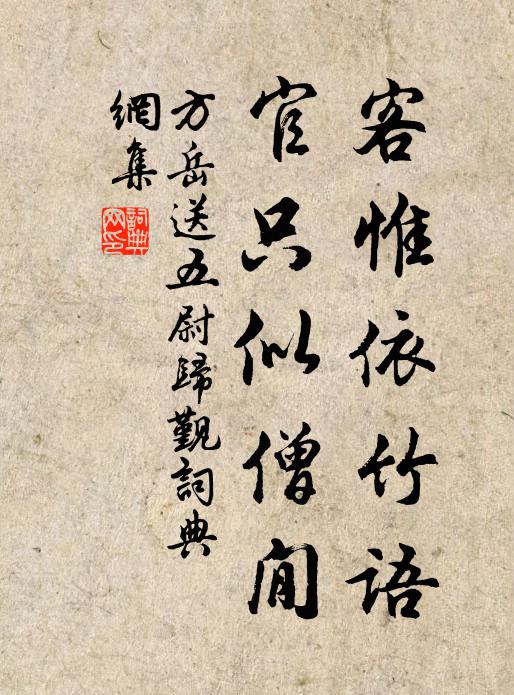 客惟依竹語
官只似僧閒
方岳送五尉歸覲詞典
網集
詞典
网印